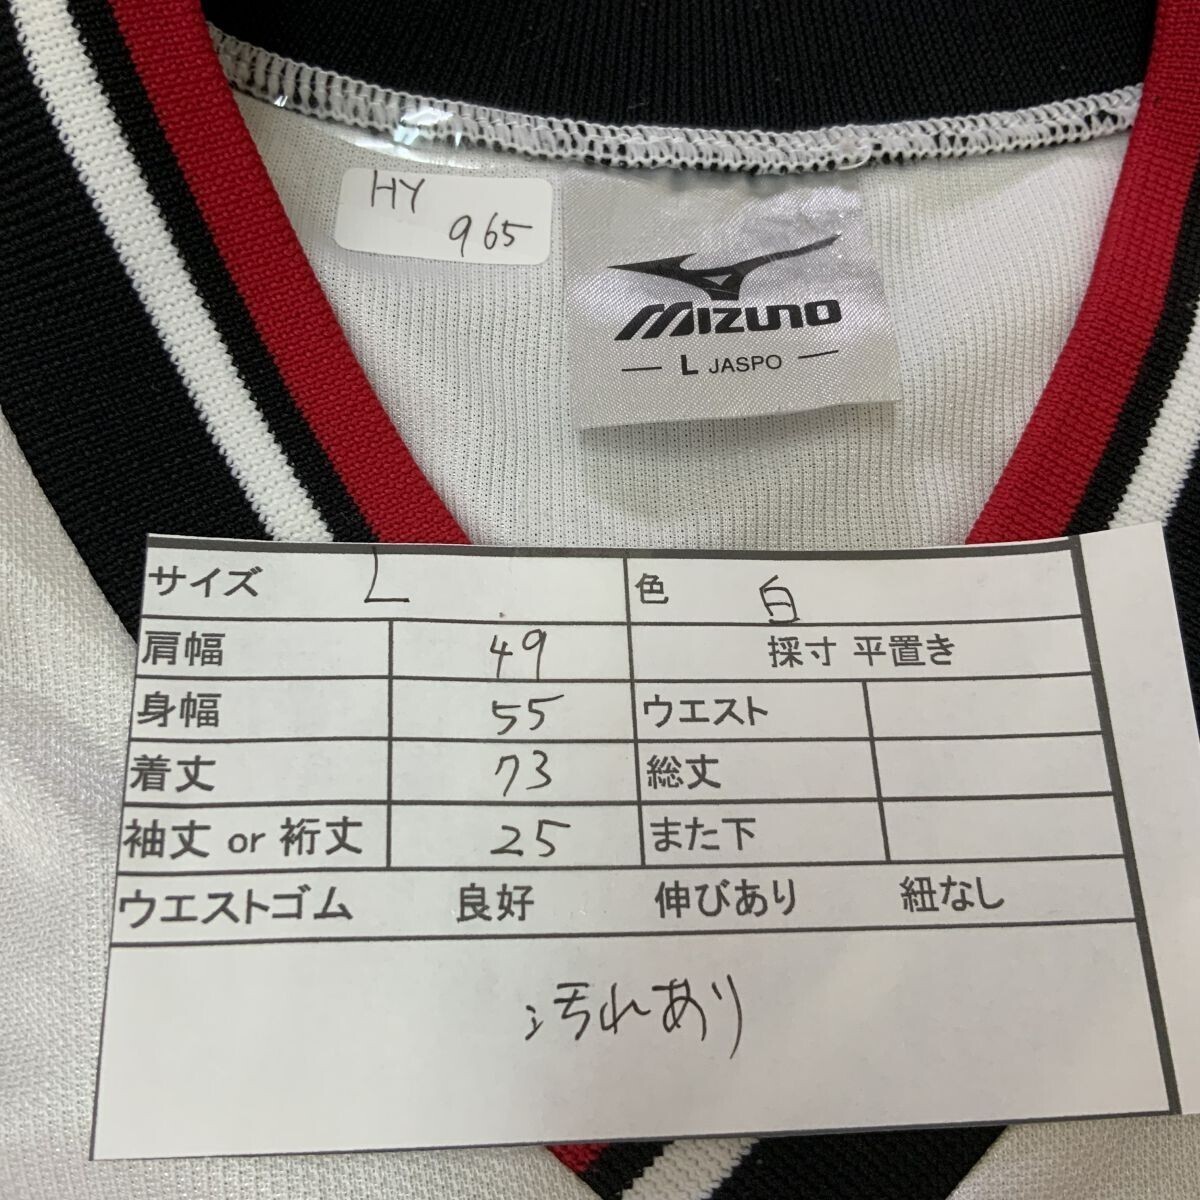 HY
965
MIZUNO
L JASPO
サイズ L 色 白
肩幅 49 採寸 平置き
身幅 55 ウエスト
着丈 73 総丈
袖丈 or 裄丈 25 また下
ウエストゴム 良好 伸びあり 紐なし
汚れあり